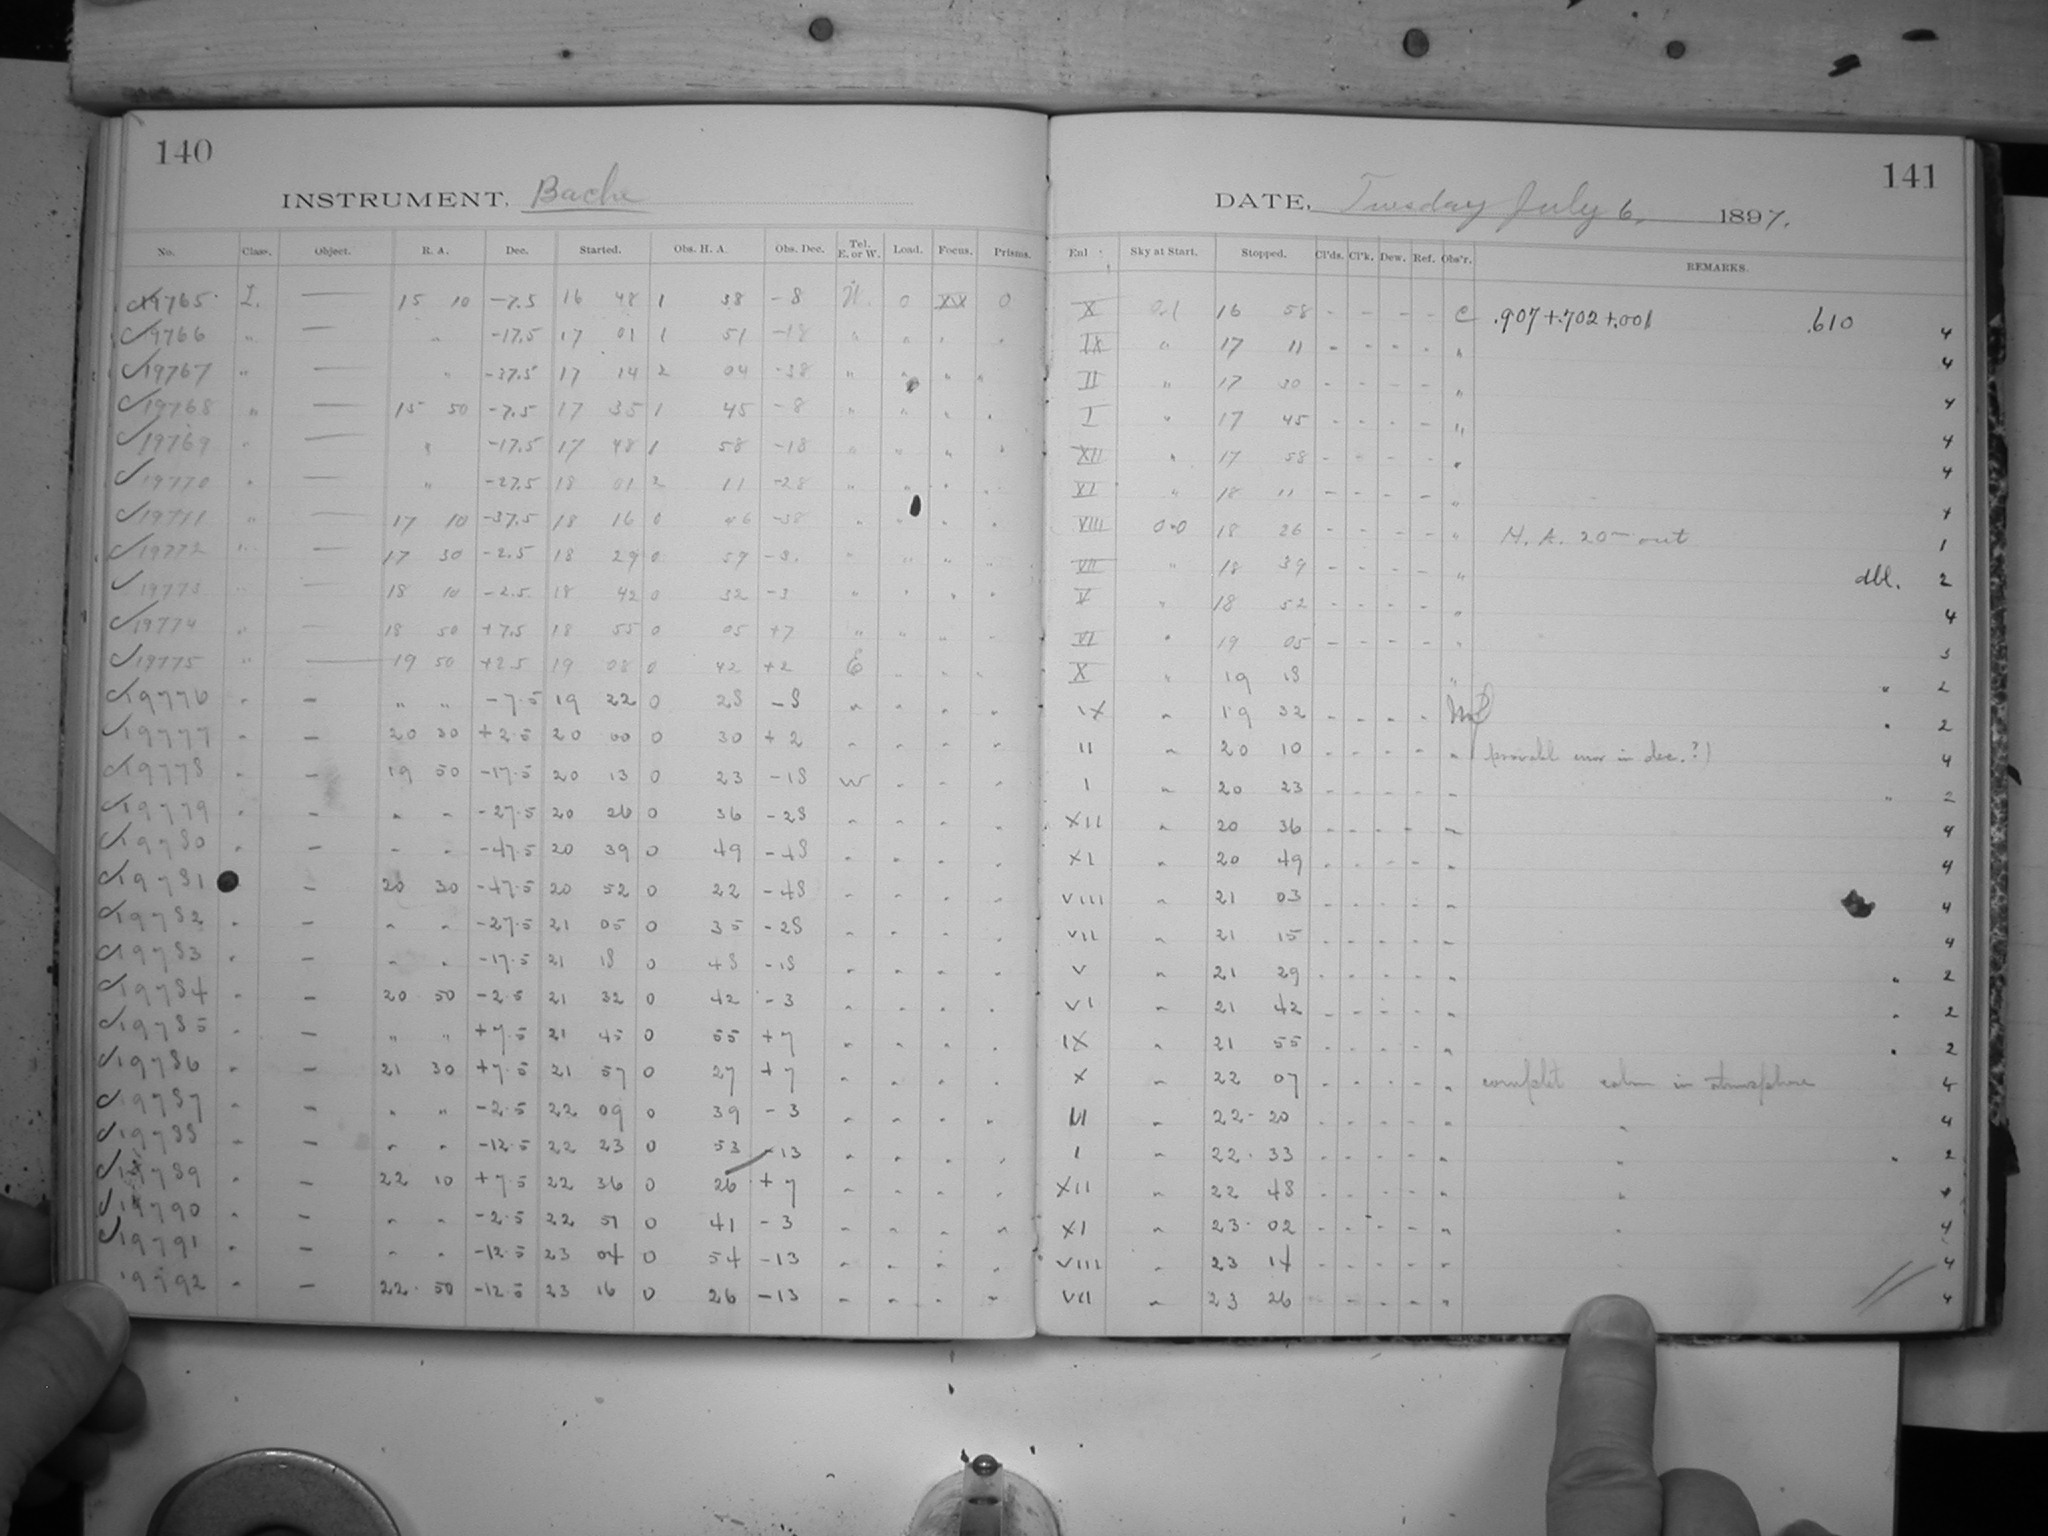 140
INSTRUMENT, Bache
No. Class. Object. R. A. Dec. Started. Obs. H. A. Obs. Dec. Tel. E. or W. Load. Focus. Prisms.
19765 I. — 15 10 -7.5 16 48 1 38 -8 W. 0 XX 0
19766 " — " -17.5 17 01 1 51 -18 " " " "
19767 " — " -37.5 17 14 2 04 -38 " " " "
19768 " — 15 50 -7.5 17 35 1 45 -8 " " " "
19769 " — " -17.5 17 48 1 58 -18 " " " "
19770 " — " -27.5 18 01 2 11 -28 " " " "
19771 " — 17 10 -37.5 18 16 0 46 -38 " " " "
19772 " — 17 30 -2.5 18 29 0 59 -3. " " " "
19773 " — 18 10 -2.5 18 42 0 32 -3 " " " "
19774 " — 18 50 +7.5 18 55 0 05 +7 " " " "
19775 " — 19 50 +2.5 19 08 0 42 +2 E " " "
19776 " — " " -7.5 19 22 0 28 -8 " " " "
19777 " — 20 30 +2.5 20 00 0 30 +2 " " " "
19778 " — 19 50 -17.5 20 13 0 23 -18 W " " "
19779 " — " " -27.5 20 26 0 36 -28 " " " "
19780 " — " " -47.5 20 39 0 49 -48 " " " "
19781 — 20 30 -47.5 20 52 0 22 -48 " " " "
19782 " — " " -27.5 21 05 0 35 -28 " " " "
19783 " — " " -17.5 21 18 0 48 -18 " " " "
19784 " — 20 50 -2.5 21 32 0 42 -3 " " " "
19785 " — " " +7.5 21 45 0 55 +7 " " " "
19786 " — 21 30 +7.5 21 57 0 27 +7 " " " "
19787 " — " " -2.5 22 09 0 39 -3 " " " "
19788 " — " " -12.5 22 23 0 53 -13 " " " "
19789 " — 22 10 +7.5 22 36 0 26 +7 " " " "
19790 " — " " -2.5 22 51 0 41 -3 " " " "
19791 " — " " -12.5 23 04 0 54 -13 " " " "
19792 " — 22 50 -12.5 23 16 0 26 -13 " " " "
141
DATE, Tuesday July 6, 1897.
Enl Sky at Start. Stopped. Cl'ds. Cl'k. Dew. Ref. Obs'r. REMARKS.
X 0.1 16 58 - - - - C .907+.702+.001 .610 4
IX " 17 11 - - - - " 4
II " 17 30 - - - - " 4
I " 17 45 - - - - " 4
XII " 17 58 - - - - " 4
XI " 18 11 - - - - " 4
VIII 0.0 18 26 - - - - " H. A. 20m out 1
VII " 18 39 - - - - " dbl. 2
V " 18 52 - - - - " 4
VI " 19 05 - - - - " 3
X " 19 18 " " 2
IX " 19 32 - - - - " 2
II " 20 10 - - - - " error in dec. ?) 4
I " 20 23 - - - - " " 2
XII " 20 36 - - - - " 4
XI " 20 49 - - - - " 4
VIII " 21 03 - - - - " 4
VII " 21 15 - - - - " 4
V " 21 29 - - - - " " 2
VI " 21 42 - - - - " " 2
IX " 21 55 - - - - " " 2
X " 22 07 - - - - " complet calm in atmosphere 4
" 22 20 - - - - " " 4
I " 22 33 - - - - " " " 2
XII " 22 48 - - - - " " 4
XI " 23 02 - - - - " " 4
VIII " 23 14 - - - - " " 4
VII " 23 26 - - - - " 4